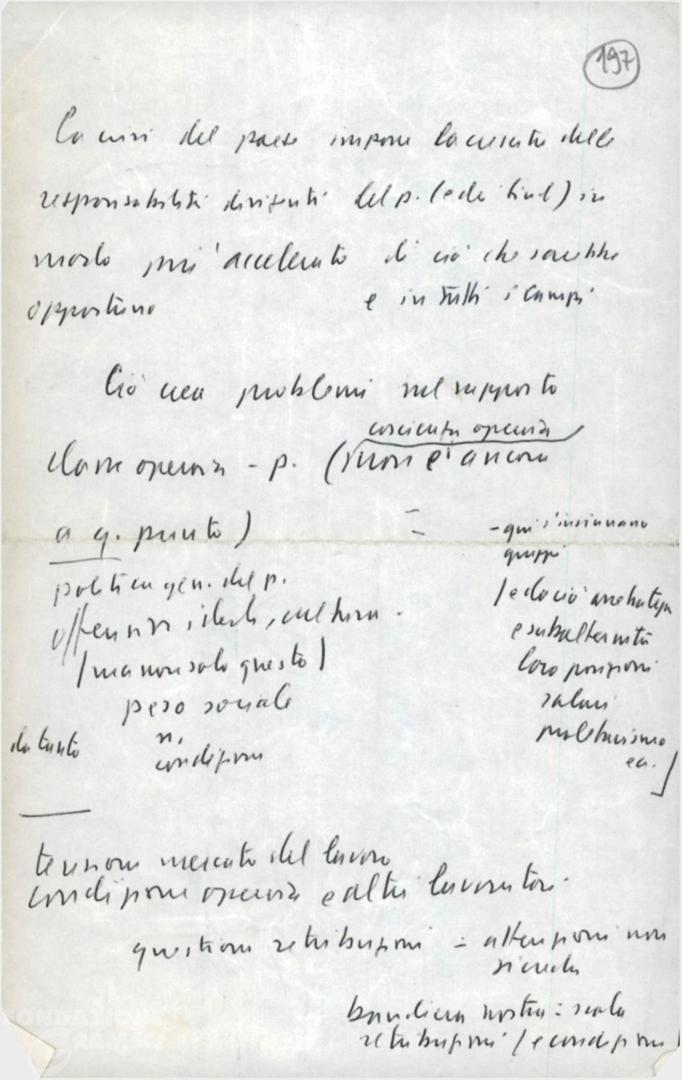 197
La crisi del paese impone la crescita delle
responsabilità dirigenti del p. (e dei sind) in
modo più accelerato di ciò che sarebbe
opportuno e in tutti i campi
Ciò crea problemi nel rapporto
coscienza operaia
classe operaia - p. (non è ancora
a q. punto) =
- qui s'insinuano
gruppi
politica gen. del p.
offensiva ideale, cultura.
(ma non solo questo)
peso sociale
n.
condizioni
da tanto
(e da ciò arretratezza
e subalternità
loro posizioni
salari
ec.]
tensioni mercato del lavoro
condizione operaia e altri lavoratori
questioni retribuzioni = attenzioni non
si creda
bandiera nostra = scala
retribuzioni (e condizioni)
FONDAZIONE